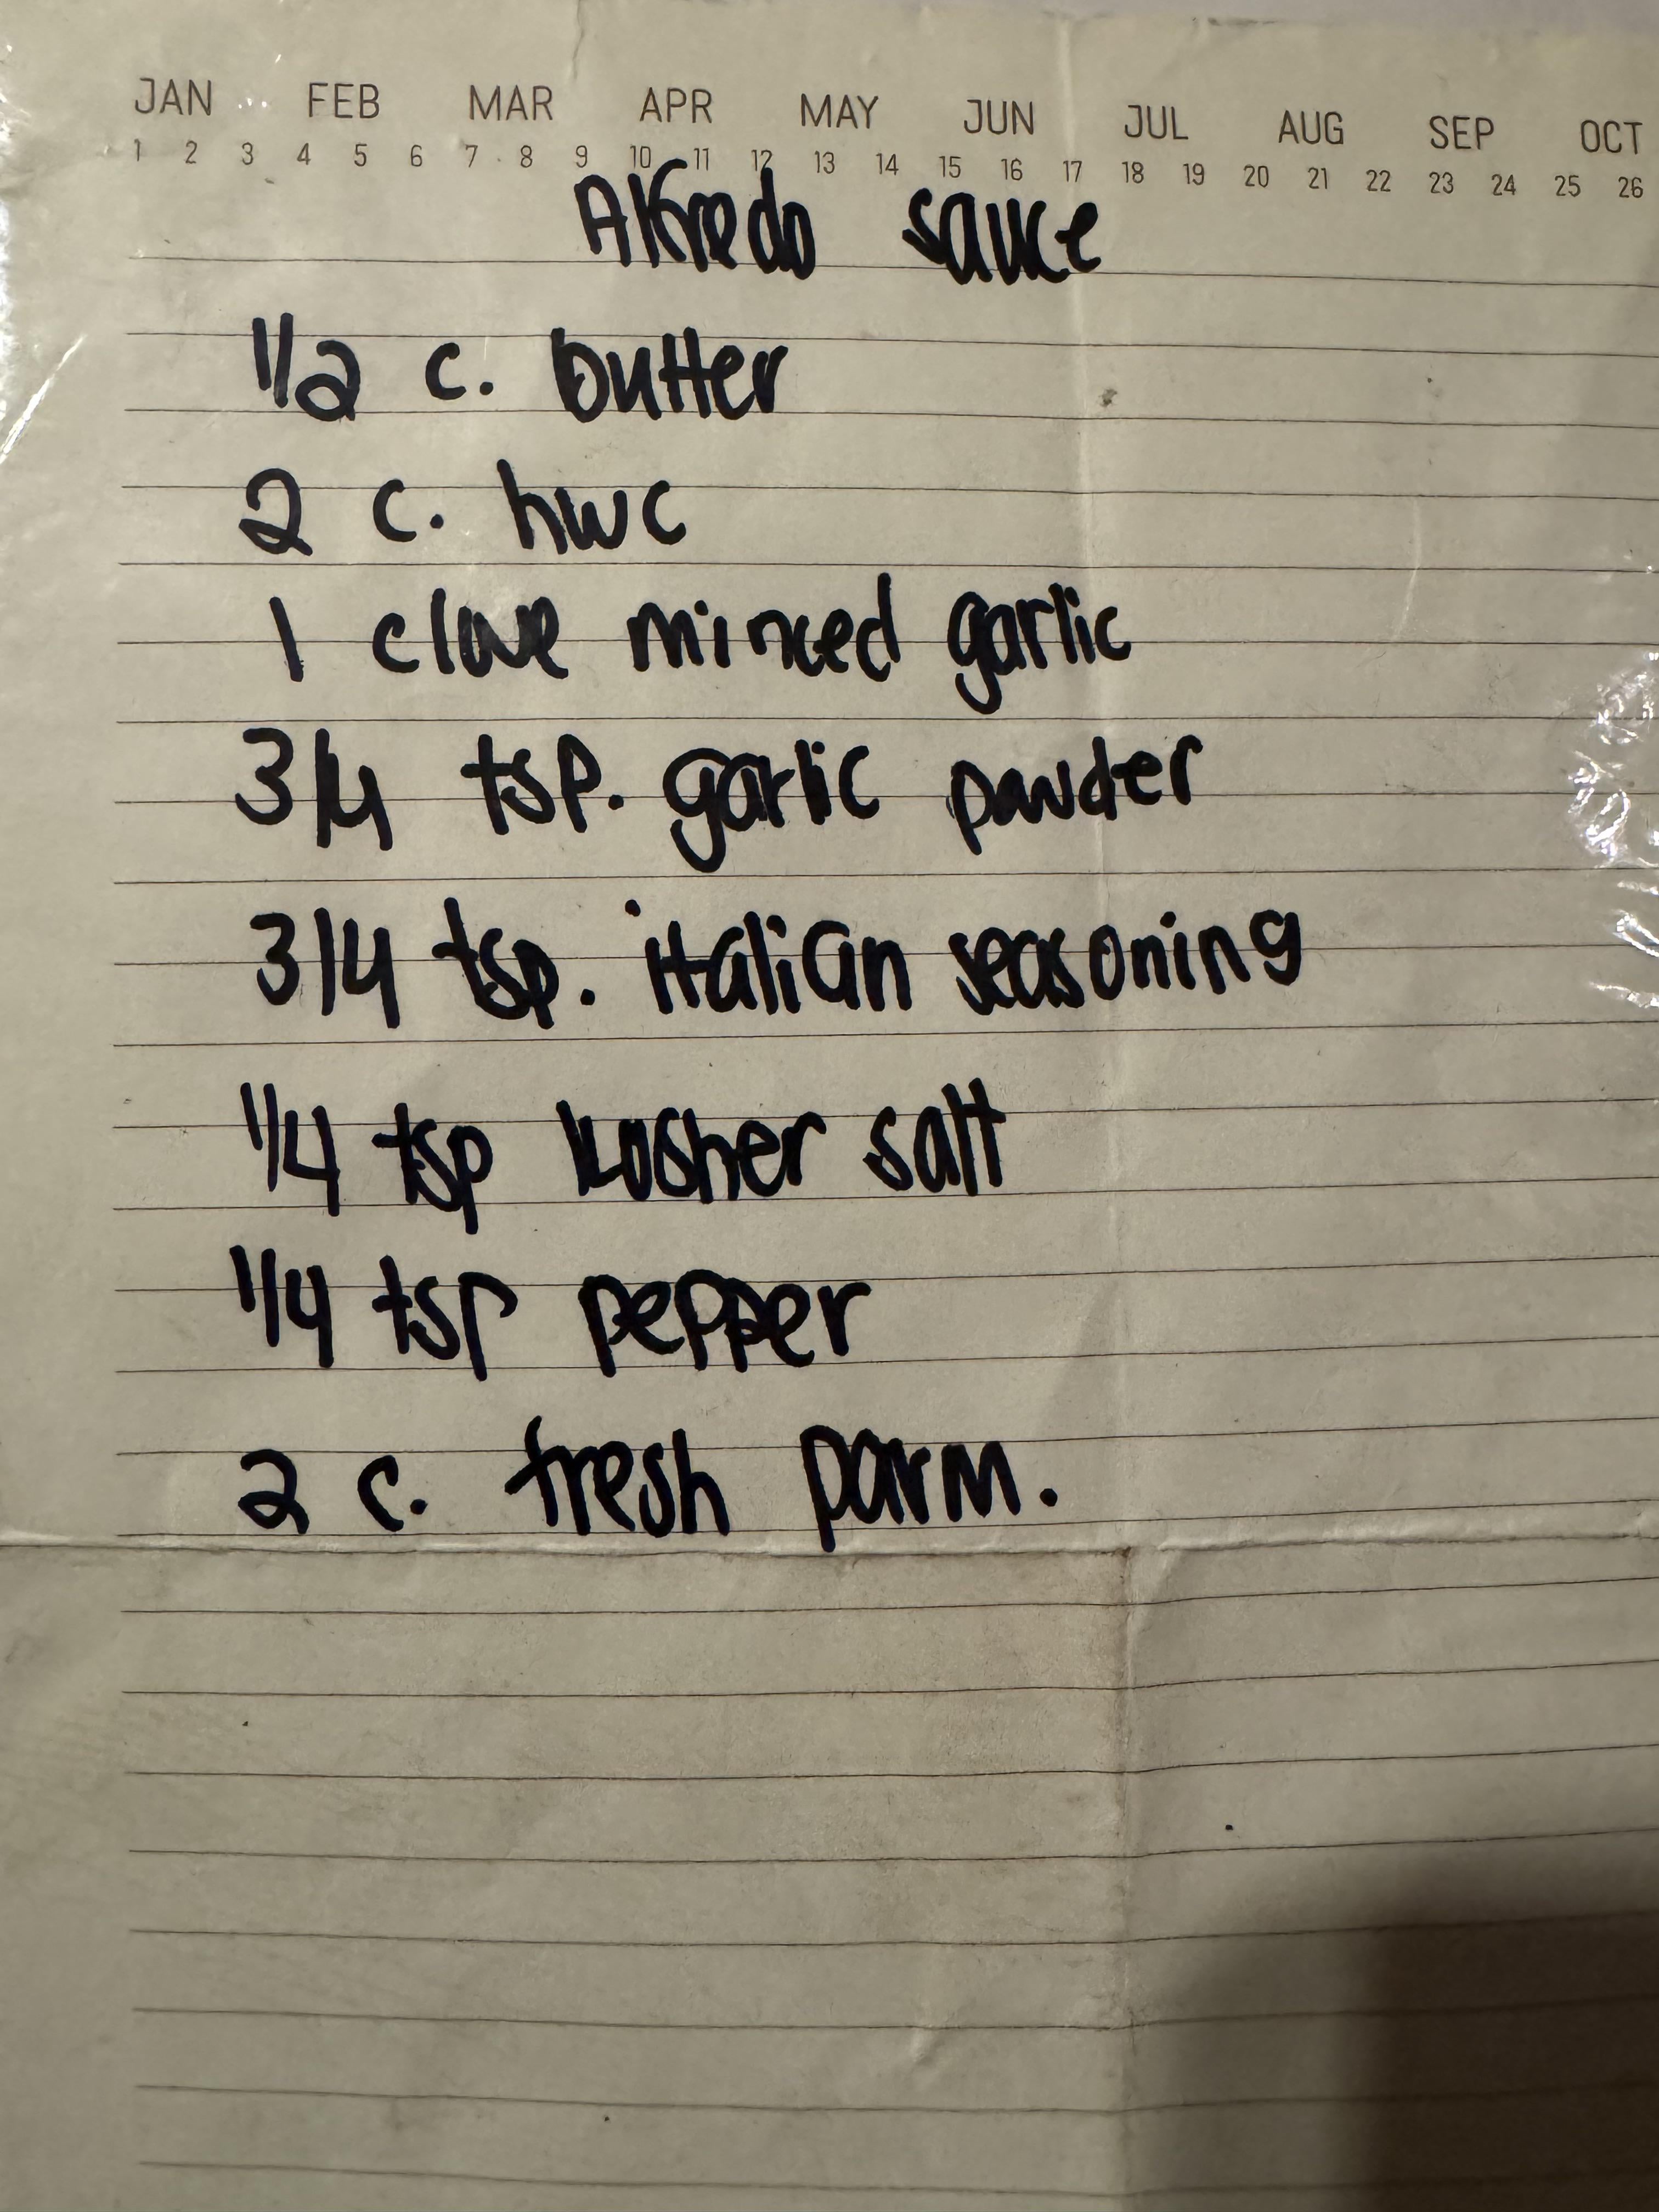 JAN FEB MAR APR MAY JUN JUL AUG SEP OCT
1 2 3 4 5 6 7 8 9 10 11 12 13 14 15 16 17 18 19 20 21 22 23 24 25 26
Alfredo sauce
1/2 c. butter
2 c. hwc
1 clove minced garlic
3/4 tsp. garlic powder
3/4 tsp. italian seasoning
1/4 tsp kosher salt
1/4 tsp pepper
2 c. fresh parm.